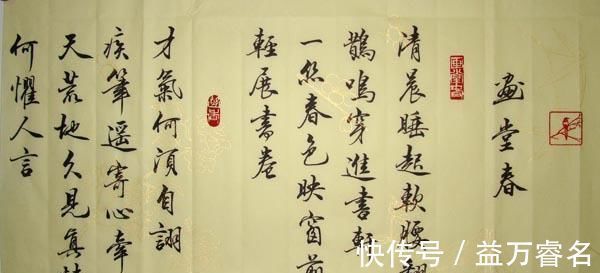 畫堂春
清晨睡起軟腰翻
鵲鳴穿進書軒
一丝春色映窗前
輕展書卷
才氣何須自詡
疾筆遥寄心牽
天荒地久見真
何懼人言
快传号 / 益万睿名